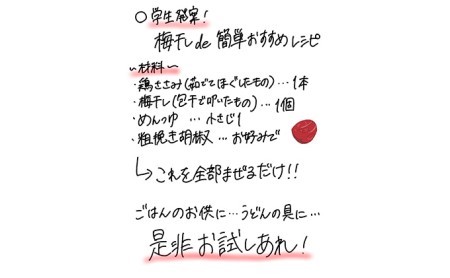 ○学生考案!
梅干し de 簡単おすすめレシピ
~材料~
・鶏ささみ(茹でてほぐしたもの)…1本
・梅干し(包丁で叩いたもの)…1個
・めんつゆ … 小さじ1
・粗挽き胡椒 … お好みで
↳これを全部まぜるだけ!!
ごはんのお供に…うどんの具に…
是非お試しあれ!